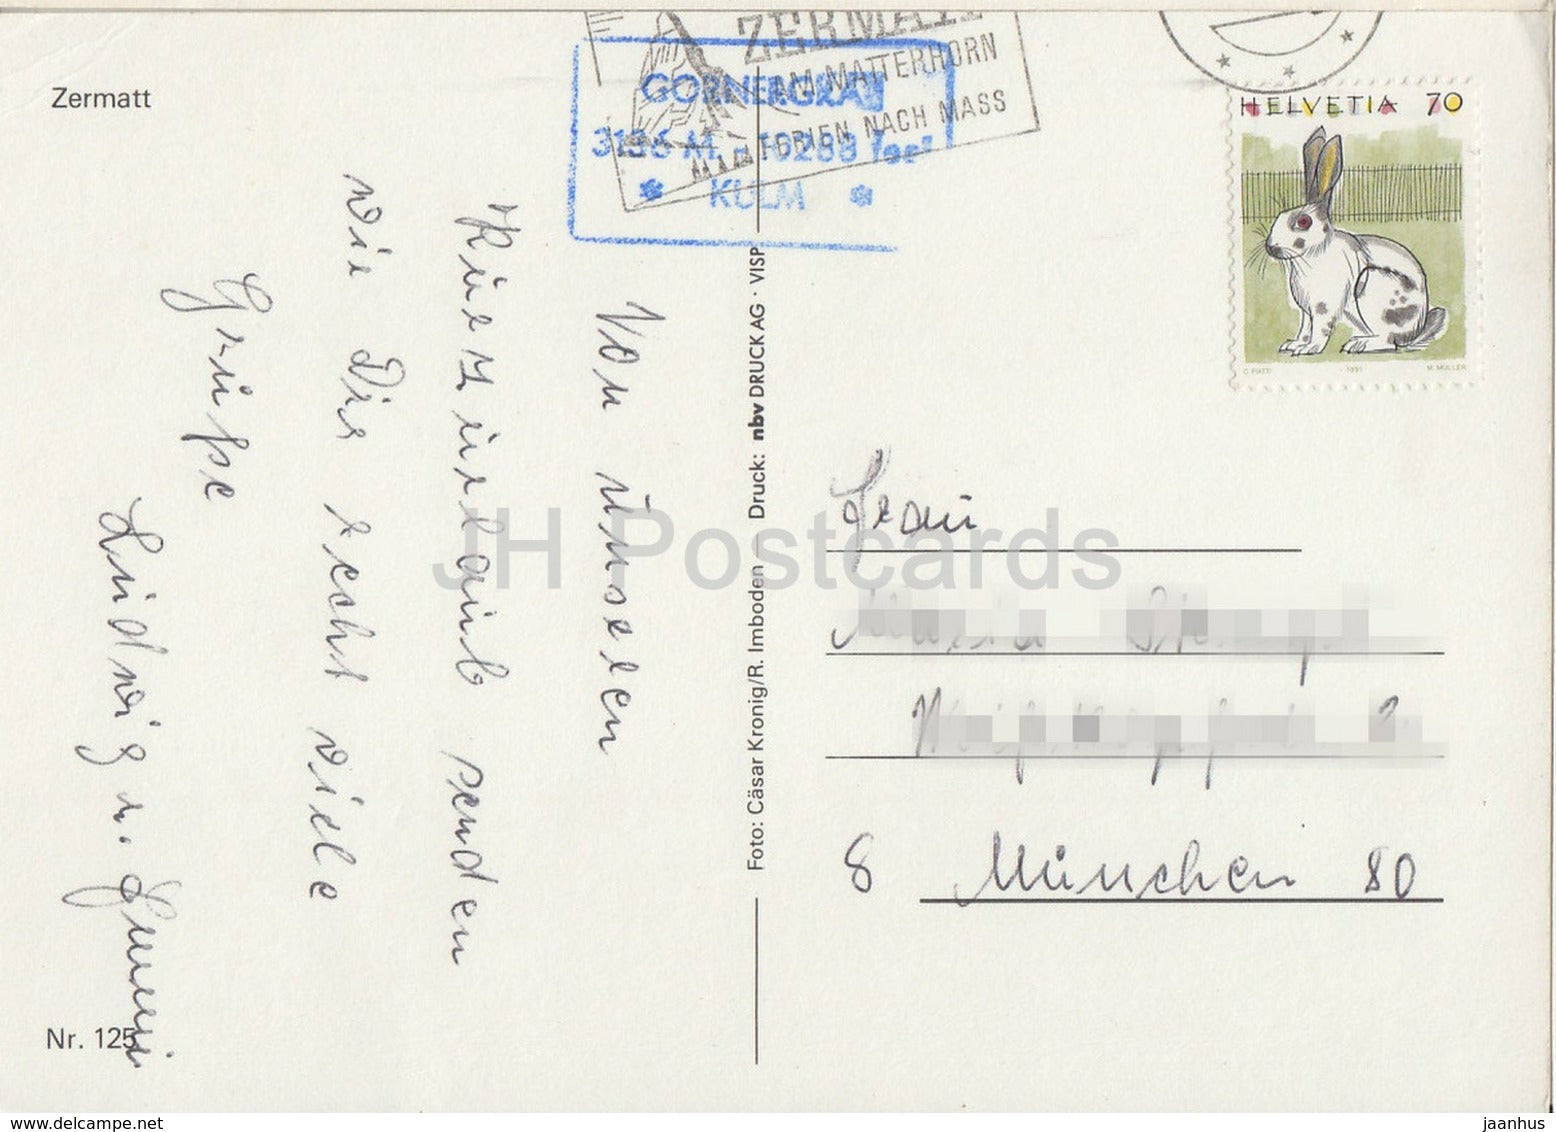 Zermatt
ZERMATT
AM MATTERHORN
FERIEN NACH MASS
GORNERGRAT
3136 M. - 10288 feet
* KULM *
HELVETIA 70
C. PIATTI 1991 M. MÜLLER
Von unseren
Kurzurlaub senden
wir Dir recht viele
Grüße
Ludwig u.
Foto: Cäsar Kronig/R. Imboden Druck: nbv DRUCK AG · VISP
Frau
8 München 80
Nr. 125
JH Postcards
www.delcampe.net
jaanhus